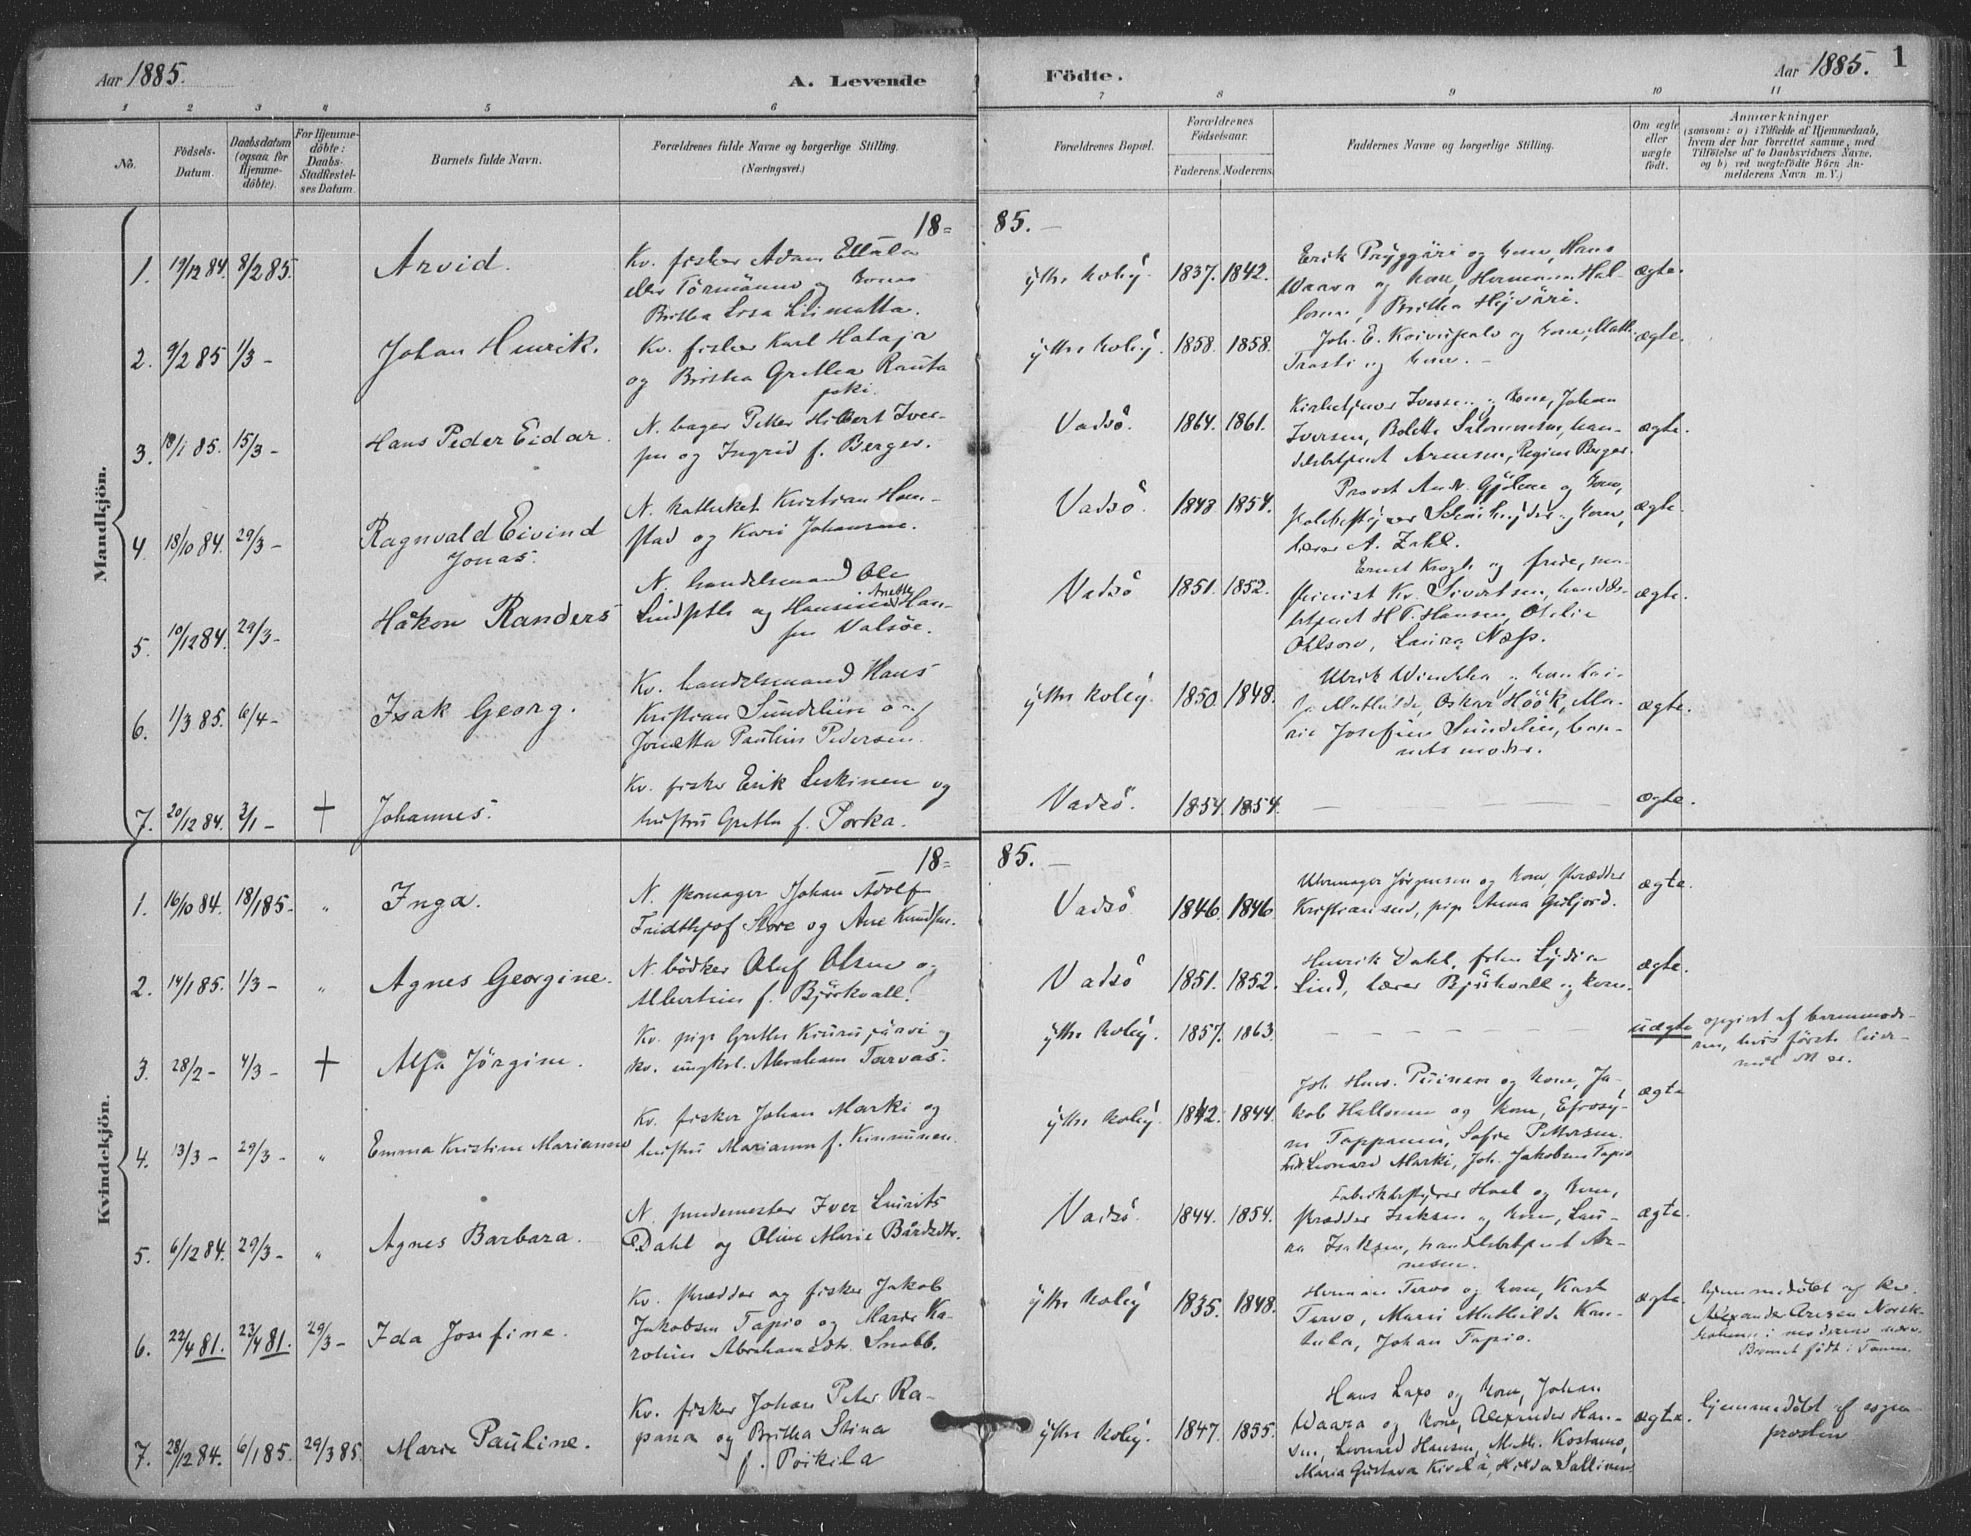 Aar 1885.
A. Levende
Födte.
Aar 1885.
1
1 2 3 4 5 6 7 8 9 10 11
No.
Födsels-
Datum.
Daabsdatum
(ogsaa for
Hjemme-
döbte).
For Hjemme-
döbte:
Daabs-
Stadfæstel-
ses Datum.
Barnets fulde Navn.
Forældrenes fulde Navne og borgerlige Stilling.
(Næringsvei.)
Forældrenes Bopæl.
Forældrenes
Födselsaar.
Faderens. Moderens.
Faddernes Navne og borgerlige Stilling.
Om ægte
eller
uægte
födt.
Anmærkninger
(saasom: a) i Tilfælde af Hjemmedaab,
hvem der har forrettet samme, med
Tilföielse af to Daabsvidners Navne,
og b) ved uægtefödte Börn An-
melderens Navn m. V.)
Mandkjön.
18= 85. —
1. 19/12 84. 8/2 85. Arvid.
Kv. fisker Adam Ellula
eller Törmänen og kone
Britha Lisa Liimatta.
ytre kolby. 1837. 1842.
Erik Pryggäri og kone, Hans
Waara og kone, Herman Hal-
, Britha
ægte.
2. 9/2 85 1/3 — Johan Henrik.
Kv. fisker Karl Hataja
og Britha Gretha Rauta
joki.
ytre kolby. 1858. 1858.
Joh. E. Koivupalo og kone, Math.
Trasti og kone. —
ægte.
3. 18/1 85. 15/3 — Hans Peder Eidar.
N. bager Peter Hilbert Iver-
sen og Ingrid f. Berger.
Vadsö. 1864. 1861.
Kirketjener Iversen og kone, Johan
Iversen, Bolette Salomonsen, han-
delsbetjent Arnesen, Regine Berger.
ægte.
4. 18/10 84. 29/3 — Ragnvald Eivind
Jonas.
N. kateket Kristian Ham-
stad og Kari Johansen.
Vadsö. 1848. 1854.
Provst Andr. Gjölme og kone,
og kone,
lærer A. Zahl.
ægte.
5. 10/12 84. 29/3 — Håkon Randers
N. handelsmand Ole
Lindseth og Hansine Anette Han-
sen Valsöe.
Vadsö 1851. 1852.
Ernst Krogh og frue, ma-
skinist Kr. Sivertsen, handels-
betjent H. P. Hansen, Otilie
Ohlson, Laura Næss.
ægte.
6. 1/3 85. 6/4 — Isak Georg.
Kv. handelsmand Hans
Kristian Sundelin og
Jonetta Pauline Pedersen.
ytre kolby. 1850. 1848.
Ulrik Winikka og kone Kai-
sa Mathilde, Oskar Höök, Ma-
rie Josefine Sundelin, bar-
nets moder.
ægte.
7. 20/12 84. 3/1 — + Johannes.
Kv. fisker Erik Leskinen og
hustru Gretha f. Porka.
Vadsö. 1854. 1854. — — —
ægte.
Kvindekjön.
18= 85. —
1. 16/10 84. 18/1 85. „ Inga.
N. skomager Johan Adolf
Fridthjof Store og Ane Knudsen.
Vadsö 1846. 1846.
Uhrmager Jörgensen og kone, skrædder
Kristiansen, pige Anna Guljord.
ægte.
2. 14/1 85. 1/3 — „ Agnes Georgine.
N. bödker Oluf Olsen og
Albertine f. Björkvall.
Vadsö 1851. 1852.
Henrik Dahl, frøken Lydia
Lind, lærer Björkvall og kone.
ægte.
3. 28/2 — 4/3 — + Alfa Jörgine.
Kv. pige Gretha Kiurujärvi og
Kv. ungkarl Abraham Tarvas.
ytre kolby. 1857. 1863. — — — —
uægte
opgivet af barnemode-
ren, hvis förste leier-
mål det er.
4. 13/3 — 29/3 — „ Emma Kristine Marianne
Kv. fisker Johan Marki og
hustru Mariana f. Kinnunen.
ytre kolby. 1842. 1844.
Joh. Henr. Puinen og kone, Ja-
kob Hallonen og kone, Efrosy-
ne Tappanen, Sofie Pettersen.
Leonard Marki, Joh. Jakobsen Tapio
ægte
5. 6/12 84. 29/3 — „ Agnes Barbara.
N. smedemester Iver Laurits
Dahl og Oline Marie Bårdsdtr.
Vadsö. 1844. 1854.
Fabrikbestyrer Hoel og kone,
skrædder Isaksen og kone, Lau-
ra Isaksen, handelsbetjent Ar-
nesen.
ægte.
6. 22/4 81. 23/4 81. 29/3 — Ida Josefine.
Kv. skrædder og fisker Jakob
Jakobsen Tapio og Marie Ka-
roline Abrahamsdtr. Snabb.
ytre kolby 1835. 1848.
Herman Tervo og kone, Karl
Tervo, Marie Mathilde Kan-
, Johan Tapio.
ægte.
hjemmedöbt af Kv.
Alexander Norsk-
i moderens nærv.
Barnet födt i Tanen.
7. 28/12 84. 6/1 85. 29/3 85. Marie Pauline.
Kv. fisker Johan Peter Ra-
pana og Britha Stina
f. Poikila
ytre kolby. 1847. 1855.
Hans Laxo og kone, Johan
Waara og kone, Alexander Han-
sen, Leonard Hansen, Math. Kostamo,
Maria Gustava Kivelä, Hilda Sallinen.
ægte.
hjemmedöbt af sogne-
presten